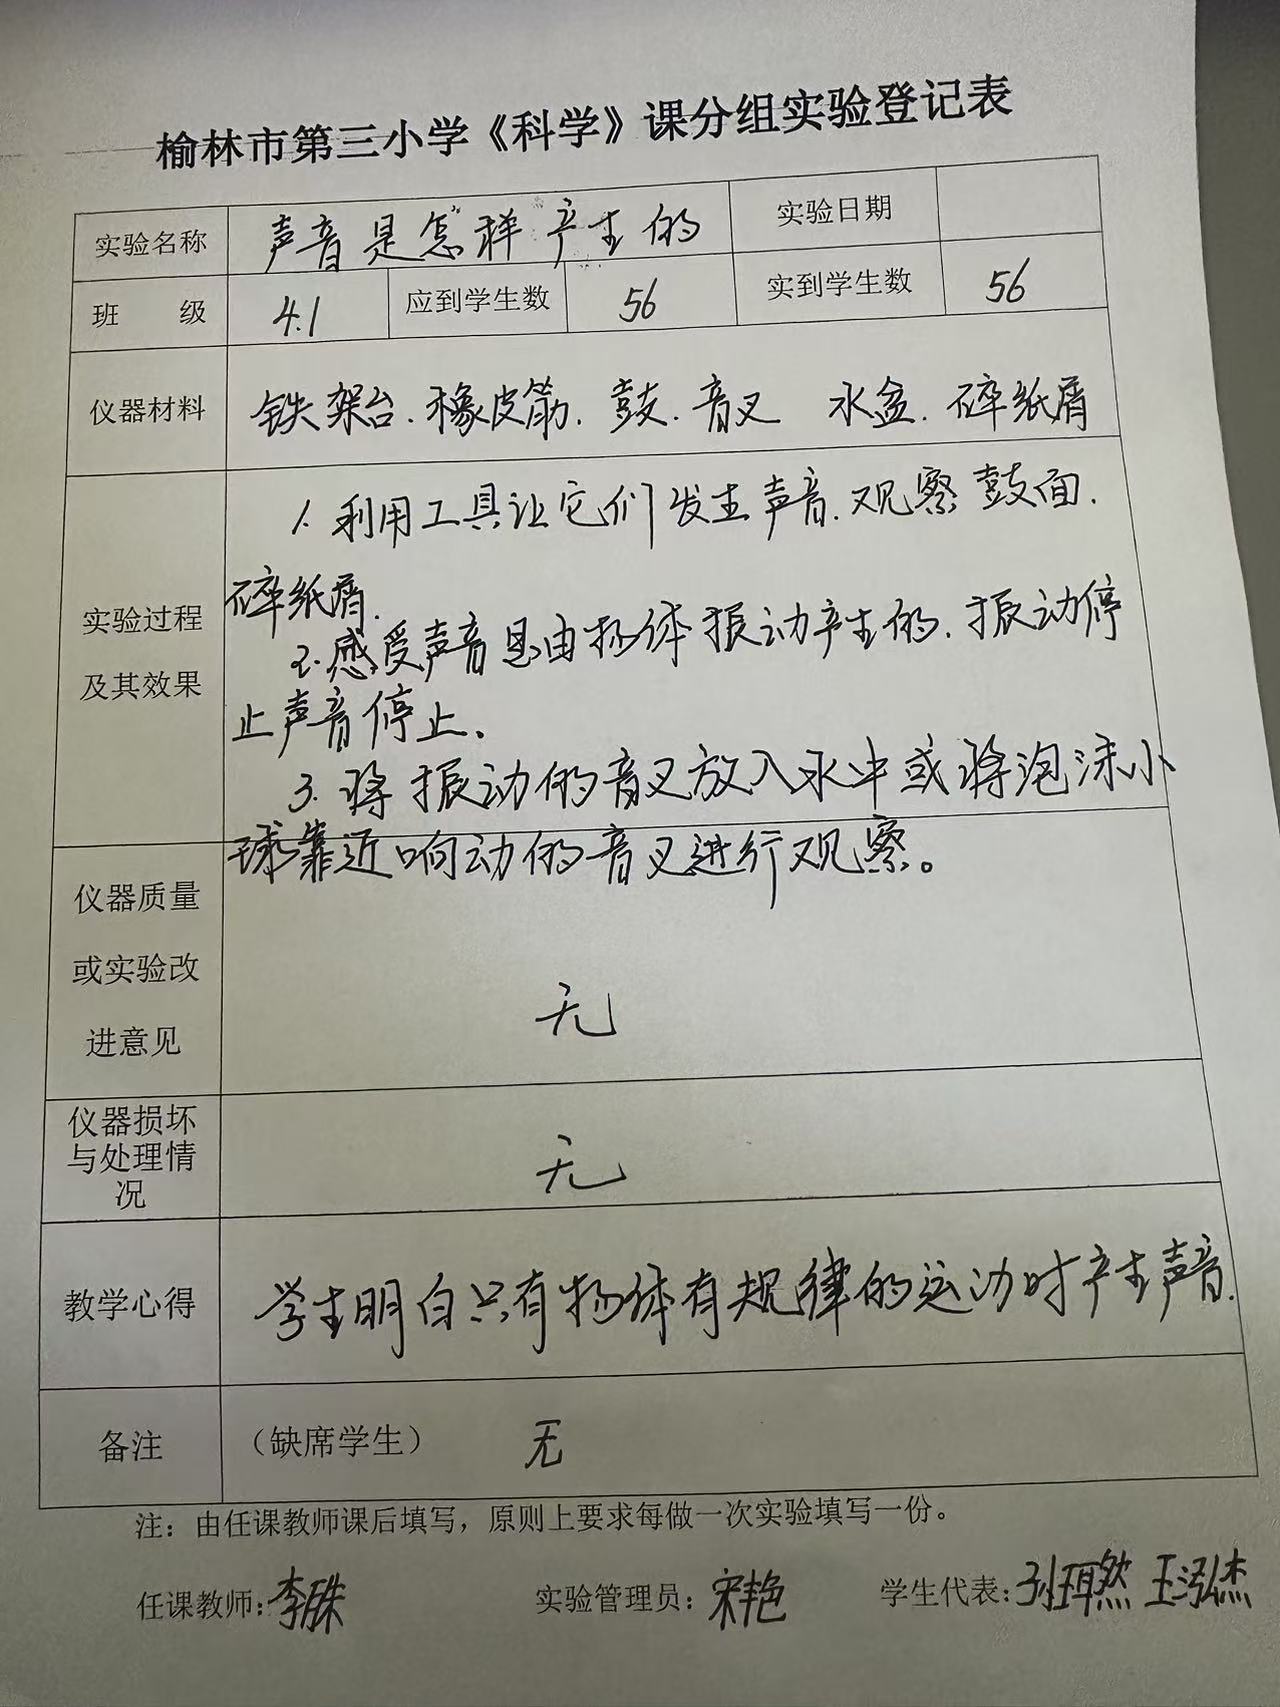 榆林市第三小学《科学》课分组实验登记表
实验名称 声音是怎样产生的 实验日期
班 级 4.1 应到学生数 56 实到学生数 56
仪器材料 铁架台.橡皮筋.鼓.音叉 水盆.碎纸屑
实验过程
及其效果
1.利用工具让它们发生声音.观察鼓面.
碎纸屑.
2.感受声音是由物体振动产生的.振动停
止声音停止。
3.将振动的音叉放入水中或将泡沫小
球靠近响动的音叉进行观察。
仪器质量
或实验改
进意见
无
仪器损坏
与处理情
况
无
教学心得 学生明白只有物体有规律的运动时产生声音.
备注 (缺席学生) 无
注：由任课教师课后填写，原则上要求每做一次实验填写一份。
任课教师:李珠 实验管理员:宋艳 学生代表:孙珥然 王泓杰